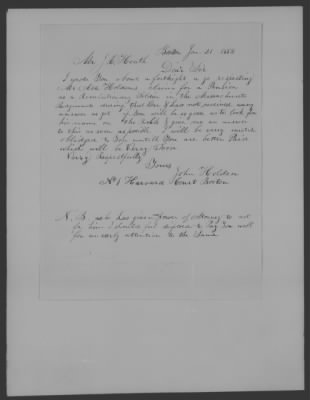 Boston Jan. 21 1853
Mr J. C. Heath
Dear Sir
I wrote You about a fortnight a go respecting
Mr Asa Holdens claim for a Pension
as a Revolutionary Soldier in the Massachusetts
during that War I have not received any
answer as yet if You will be so good as to look for
his name on the Rolls & give me an answer
to this as soon as possible I will be very much
obliged to You untill You are better Paid
which will be Very Soon
Very Respectfully
Yours
John Holden
No 1 Harvard Court Boston
N. B. as he has given Power of Attorney to act
for him I should feel disposed to Pay You well
for an early attention to the Same